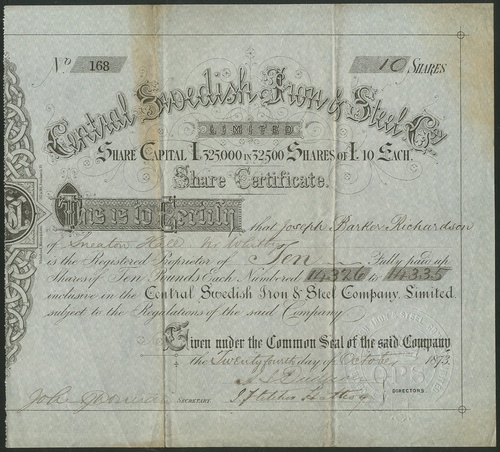 No 168 10 SHARES
Central Swedish Iron & Steel Coy
LIMITED
SHARE CAPITAL £325,000 IN 32500 SHARES OF £10 EACH.
Share Certificate.
This is to Certify that Joseph Barker Richardson
of Sneaton Hall Nr Whitby
is the Registered Proprietor of Ten Fully paid up
Shares of Ten Pounds Each Numbered 14326 to 14335
exclusive in the Central Swedish Iron & Steel Company, Limited.
subject to the Regulations of the said Company
Given under the Common Seal of the said Company
the Twenty fourth day of October 1873.
SECRETARY
DIRECTORS.